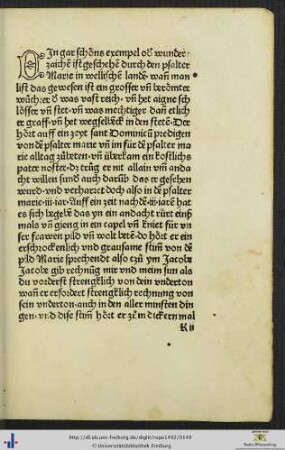 EIn gar schöns exempel oð wunder
zaichē ist geschehē durch den psalter
Marie in welischen lande. wañ man
list das gewesen ist ein grosser vñ berömter
wůchrer ð was vast reich. vñ het aigne schlösser
vñ stet. vñ was mechtiger dañ etlich
er graff. vñ het wegselbēck in den stetē. Der
hört auff ein zeyt sant Dominicū predigen
von dē psalter marie vñ im für dē psalter ma
rie alltag zůbeten. vñ überkam ein köstlichs
pater noster. dz trůg er mit allain vmb andacht
willen sund auch darūb das er gesehen
wurd. vnd verharret doch also in dē psalter
marie. iii. iar. Auff ein zeit nach dē. iii. iarē hat
es sich begebē das yn ein andacht rürt eins
mals vñ gieng in ein capel vñ kniet für vn
ser frawen pild vñ wolt betē. do hört er ein
erschrockenlich vnd grausame stim̄ von dē
pild Marie sprechendt also zů ym Jacobe
Jacobe gib rechnūg mir vnd meim sun als
du vorderst strengklich von dein vnderton
wañ er erfordert strengklich rechnung von
sein vnderton. auch in den aller minsten din
gen. vnd dise stim̄ hört er zům dickern mal
K ij
http://dl.ub.uni-freiburg.de/diglit/rupe1492/0149
© Universitätsbibliothek Freiburg
Baden-Württemberg